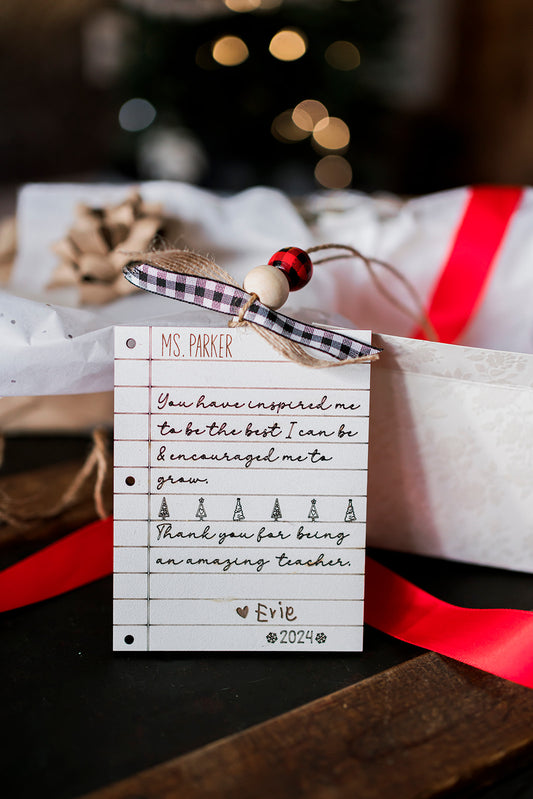 MS. PARKER
You have inspired me
to be the best I can be
& encouraged me to
grow.
Thank you for being
an amazing teacher.
Evie
2024